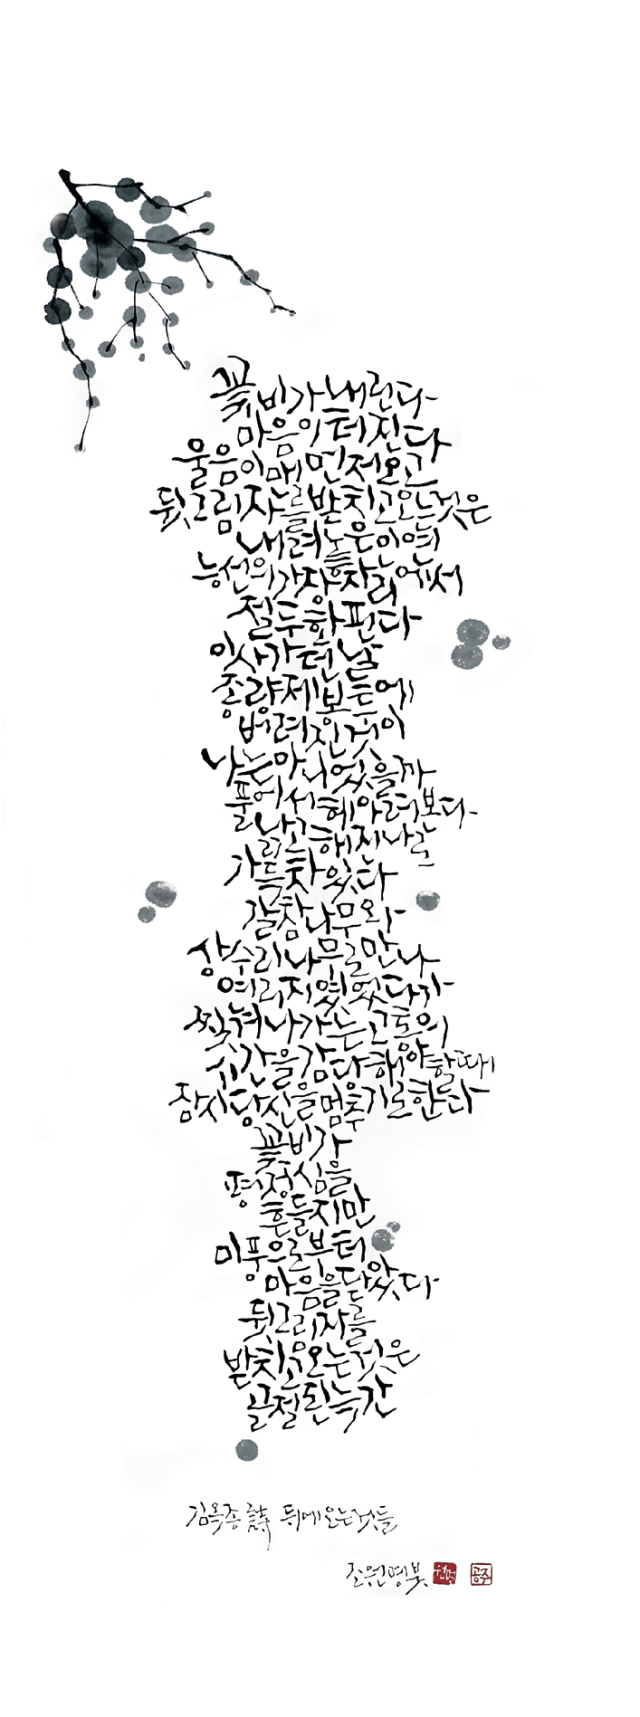 꽃비가 내린다
마음이 터진다
울음이 매 먼저 오고
뒷그림자를 받치고 오는 것은
내려놓은 인연
능선의 가장자리에서
절두하 핀다
이사 가던 날
종량제 봉투에
버려진 것이
나는 아니었을까
풀어서 헤아려보다
낡고 해지나로
가득 차 있다
갈참나무와
상수리나무로 만나
연리지였었다가
찢겨나가는 고통의
시간을 감당해야 할 때
잠시 당신을 멈추기로 한다
꽃비가
평정심을
흔들지만
미풍으로부터
마음을 닫았다
뒷그림자를
받치고 오는 것은
굴절된 늑간
김옥종 詩 뒤에 오는 것들
조원명 붓
원명
공주